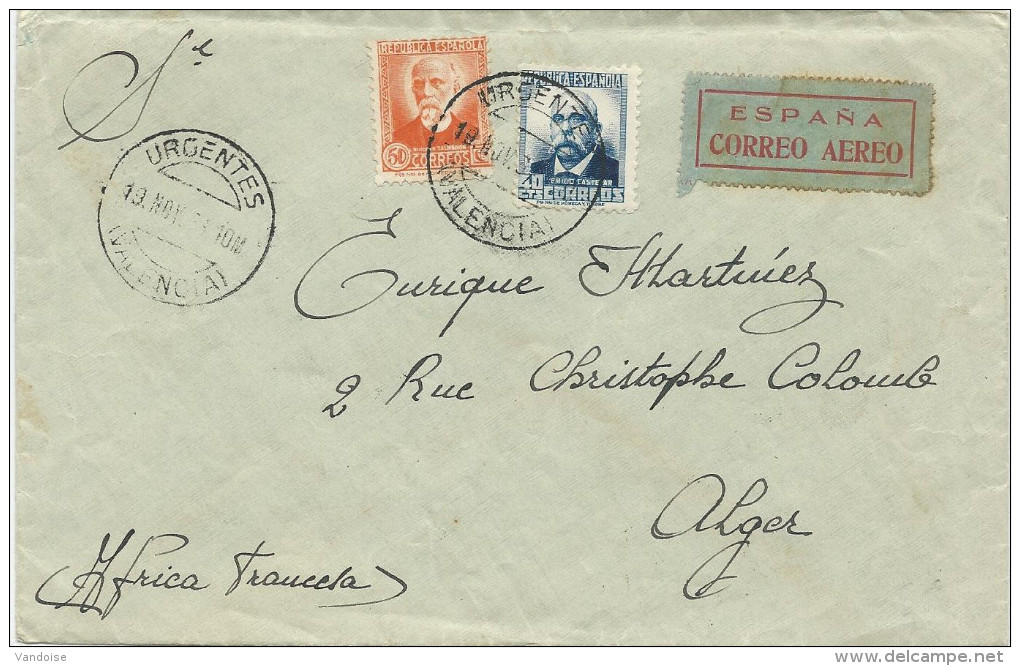 Sr
REPUBLICA ESPAÑOLA
50 CORREOS
REPUBLICA ESPAÑOLA
EMILIO CASTELAR
40 CTS CORREOS
URGENTES
19 NOV
(VALENCIA)
ESPAÑA
CORREO AEREO
URGENTES
19 NOV 10M
(VALENCIA)
Enrique Martinez
2 Rue Christophe Colomb
Alger
(Africa Francesa)
Vandoise
delcampe.net